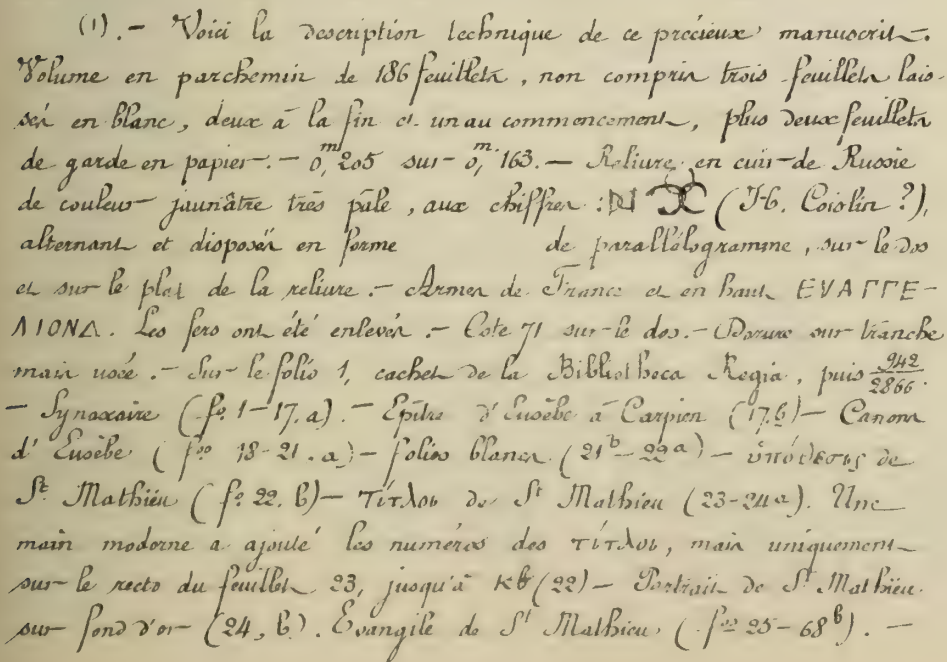 (1). — Voici la description technique de ce précieux manuscrit.
Volume en parchemin de 186 feuillets, non compris trois feuillets lais-
sés en blanc, deux à la fin et un au commencement, plus deux feuillets
de garde en papier. — 0,ᵐ205 sur 0,ᵐ163. — Reliure en cuir de Russie
de couleur jaunâtre très pâle, aux chiffres : (H. Coislin ?),
alternant et disposés en forme de parallélogramme, sur le dos
et sur le plat de la reliure. — Armes de France et en haut ΕVΑΓΓΕ-
ΛΙΟΝΔ. Les fers ont été enlevés. — Cote 71 sur le dos. — Dorure sur tranche
mais usée. — Sur le folio 1, cachet de la Bibliotheca Regia, puis 942/2866.
— Synaxaire (fº 1-17.a). — Epître d'Eusèbe à Carpien (17.b) — Canons
d'Eusèbe (fºˢ 18-21.a) — folios blancs (21ᵇ-22ᵃ) — ὑπόθεσις de
Sᵗ Mathieu (fº 22.b) — τίτλοι de Sᵗ Mathieu (23-24ᵃ). Une
main moderne a ajouté les numéros des τίτλοι, mais uniquement
sur le recto du feuillet 23, jusqu'à κβ (22) — Portrait de Sᵗ Mathieu
sur fond d'or (24, b). Evangile de Sᵗ Mathieu (fºˢ 25-68ᵇ). —